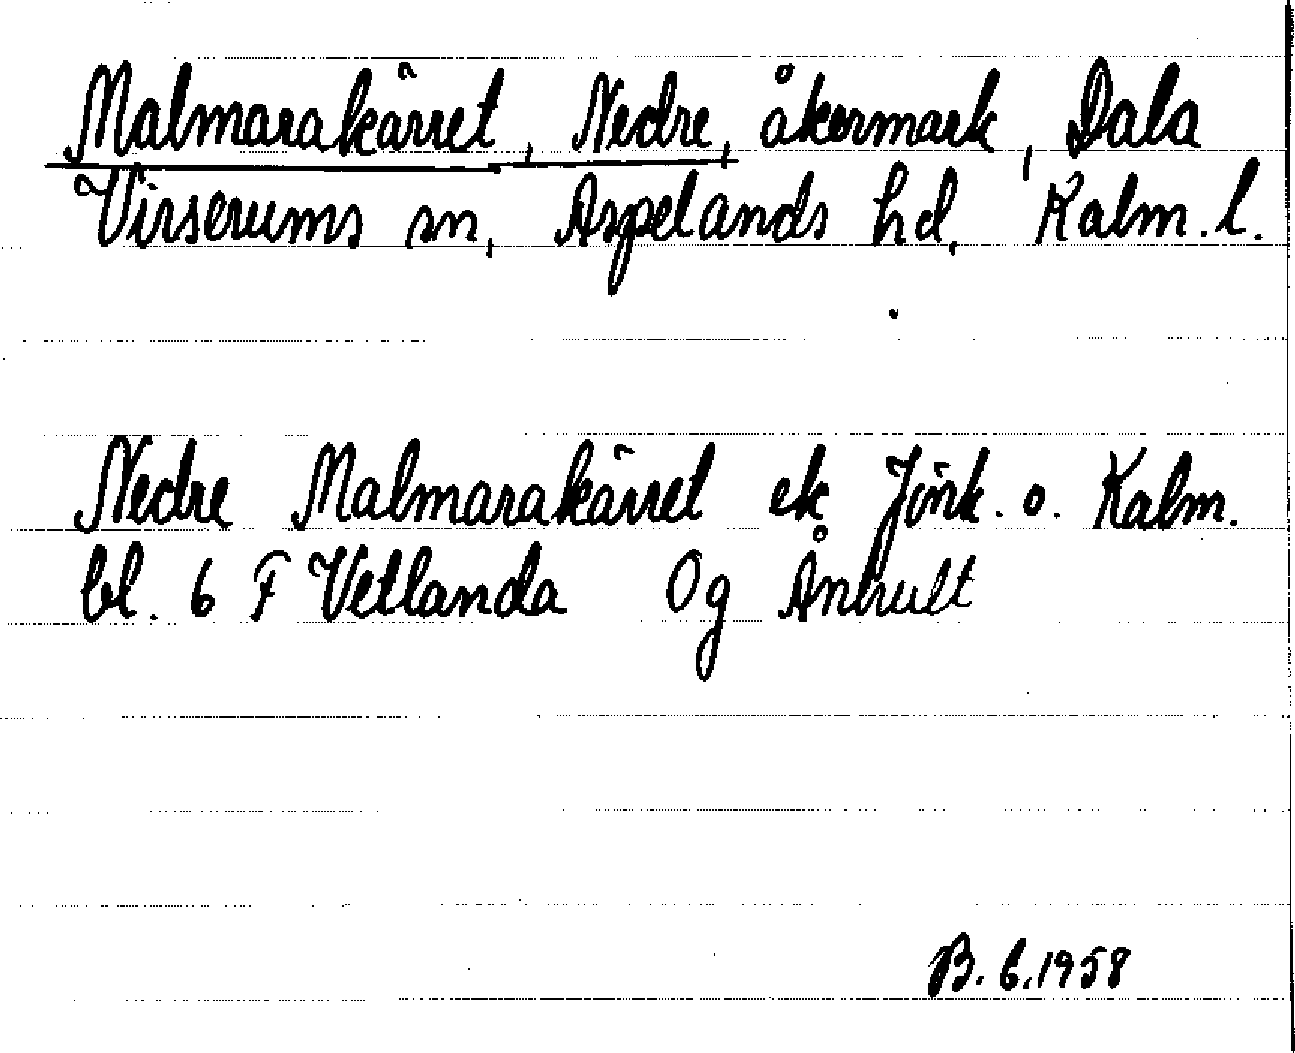 Malmarakärret, Nedre, åkermark, Dala
Virserums sn, Aspelands hd, Kalm. l.
Nedre Malmarakärret ek Jönk. o. Kalm.
bl. 6 F Vetlanda Og Ånhult
B. 6.1958